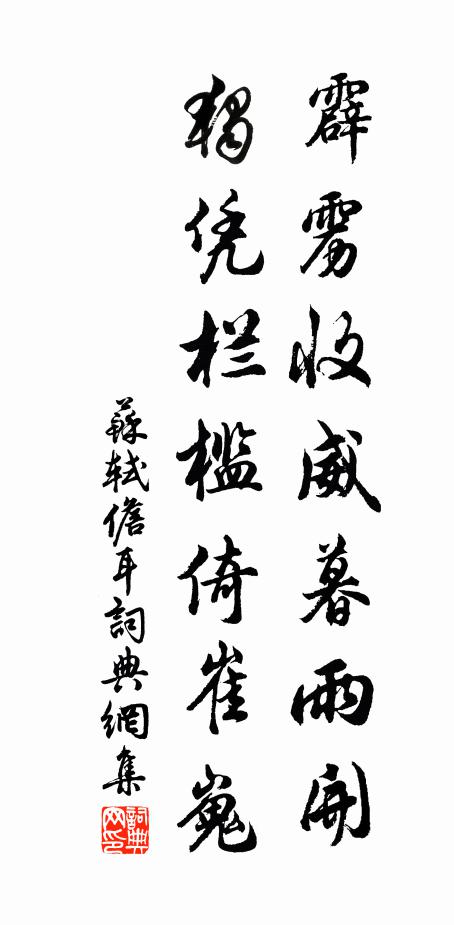 霹雳收威暮雨開
獨凭栏槛倚崔嵬
蘇軾儋耳詞典網集
詞典网印